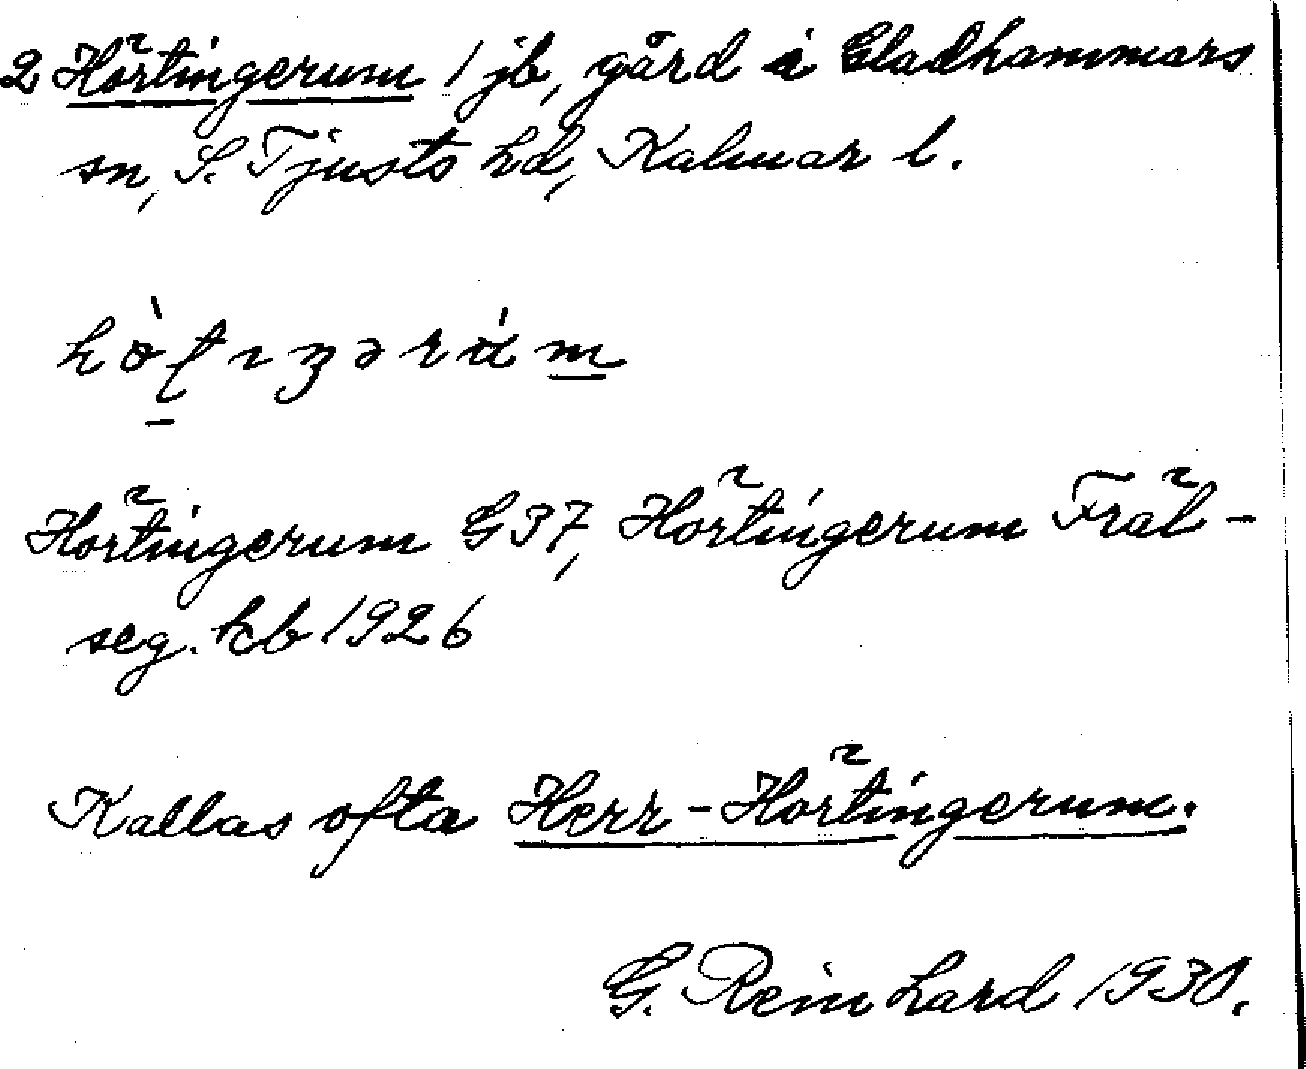 2 Hörtingerum 1 jb, gård i Gladhammars
sn, S. Tjusts hd, Kalmar l.
Hörtingerum G37, Hörtingerum Fräl-
seg. kb 1926
Kallas ofta Herr-Hörtingerum.
G. Reinhard 1930.